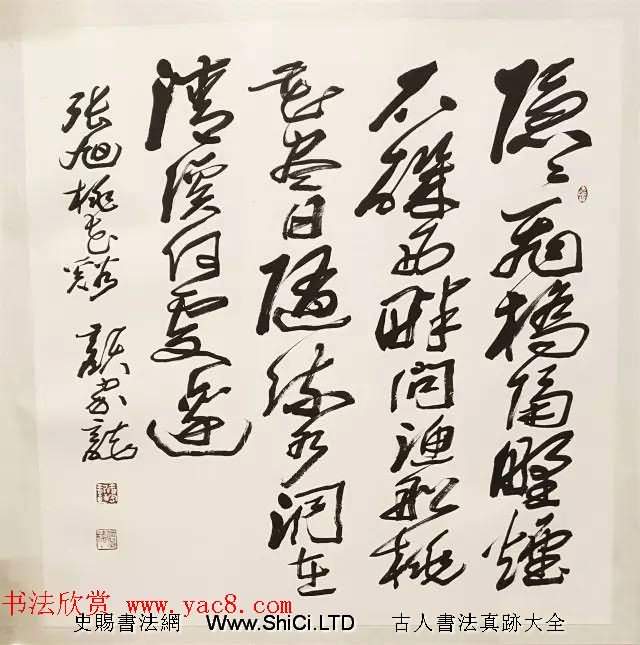 隱々飛橋隔野煙
石磯西畔問漁船桃
花盡日隨流水洞在
清溪何處邊
張旭桃花谿 顏家龍
书法欣赏 www.yac8.com
史賜書法網 www.ShiCi.LTD 古人書法真跡大全